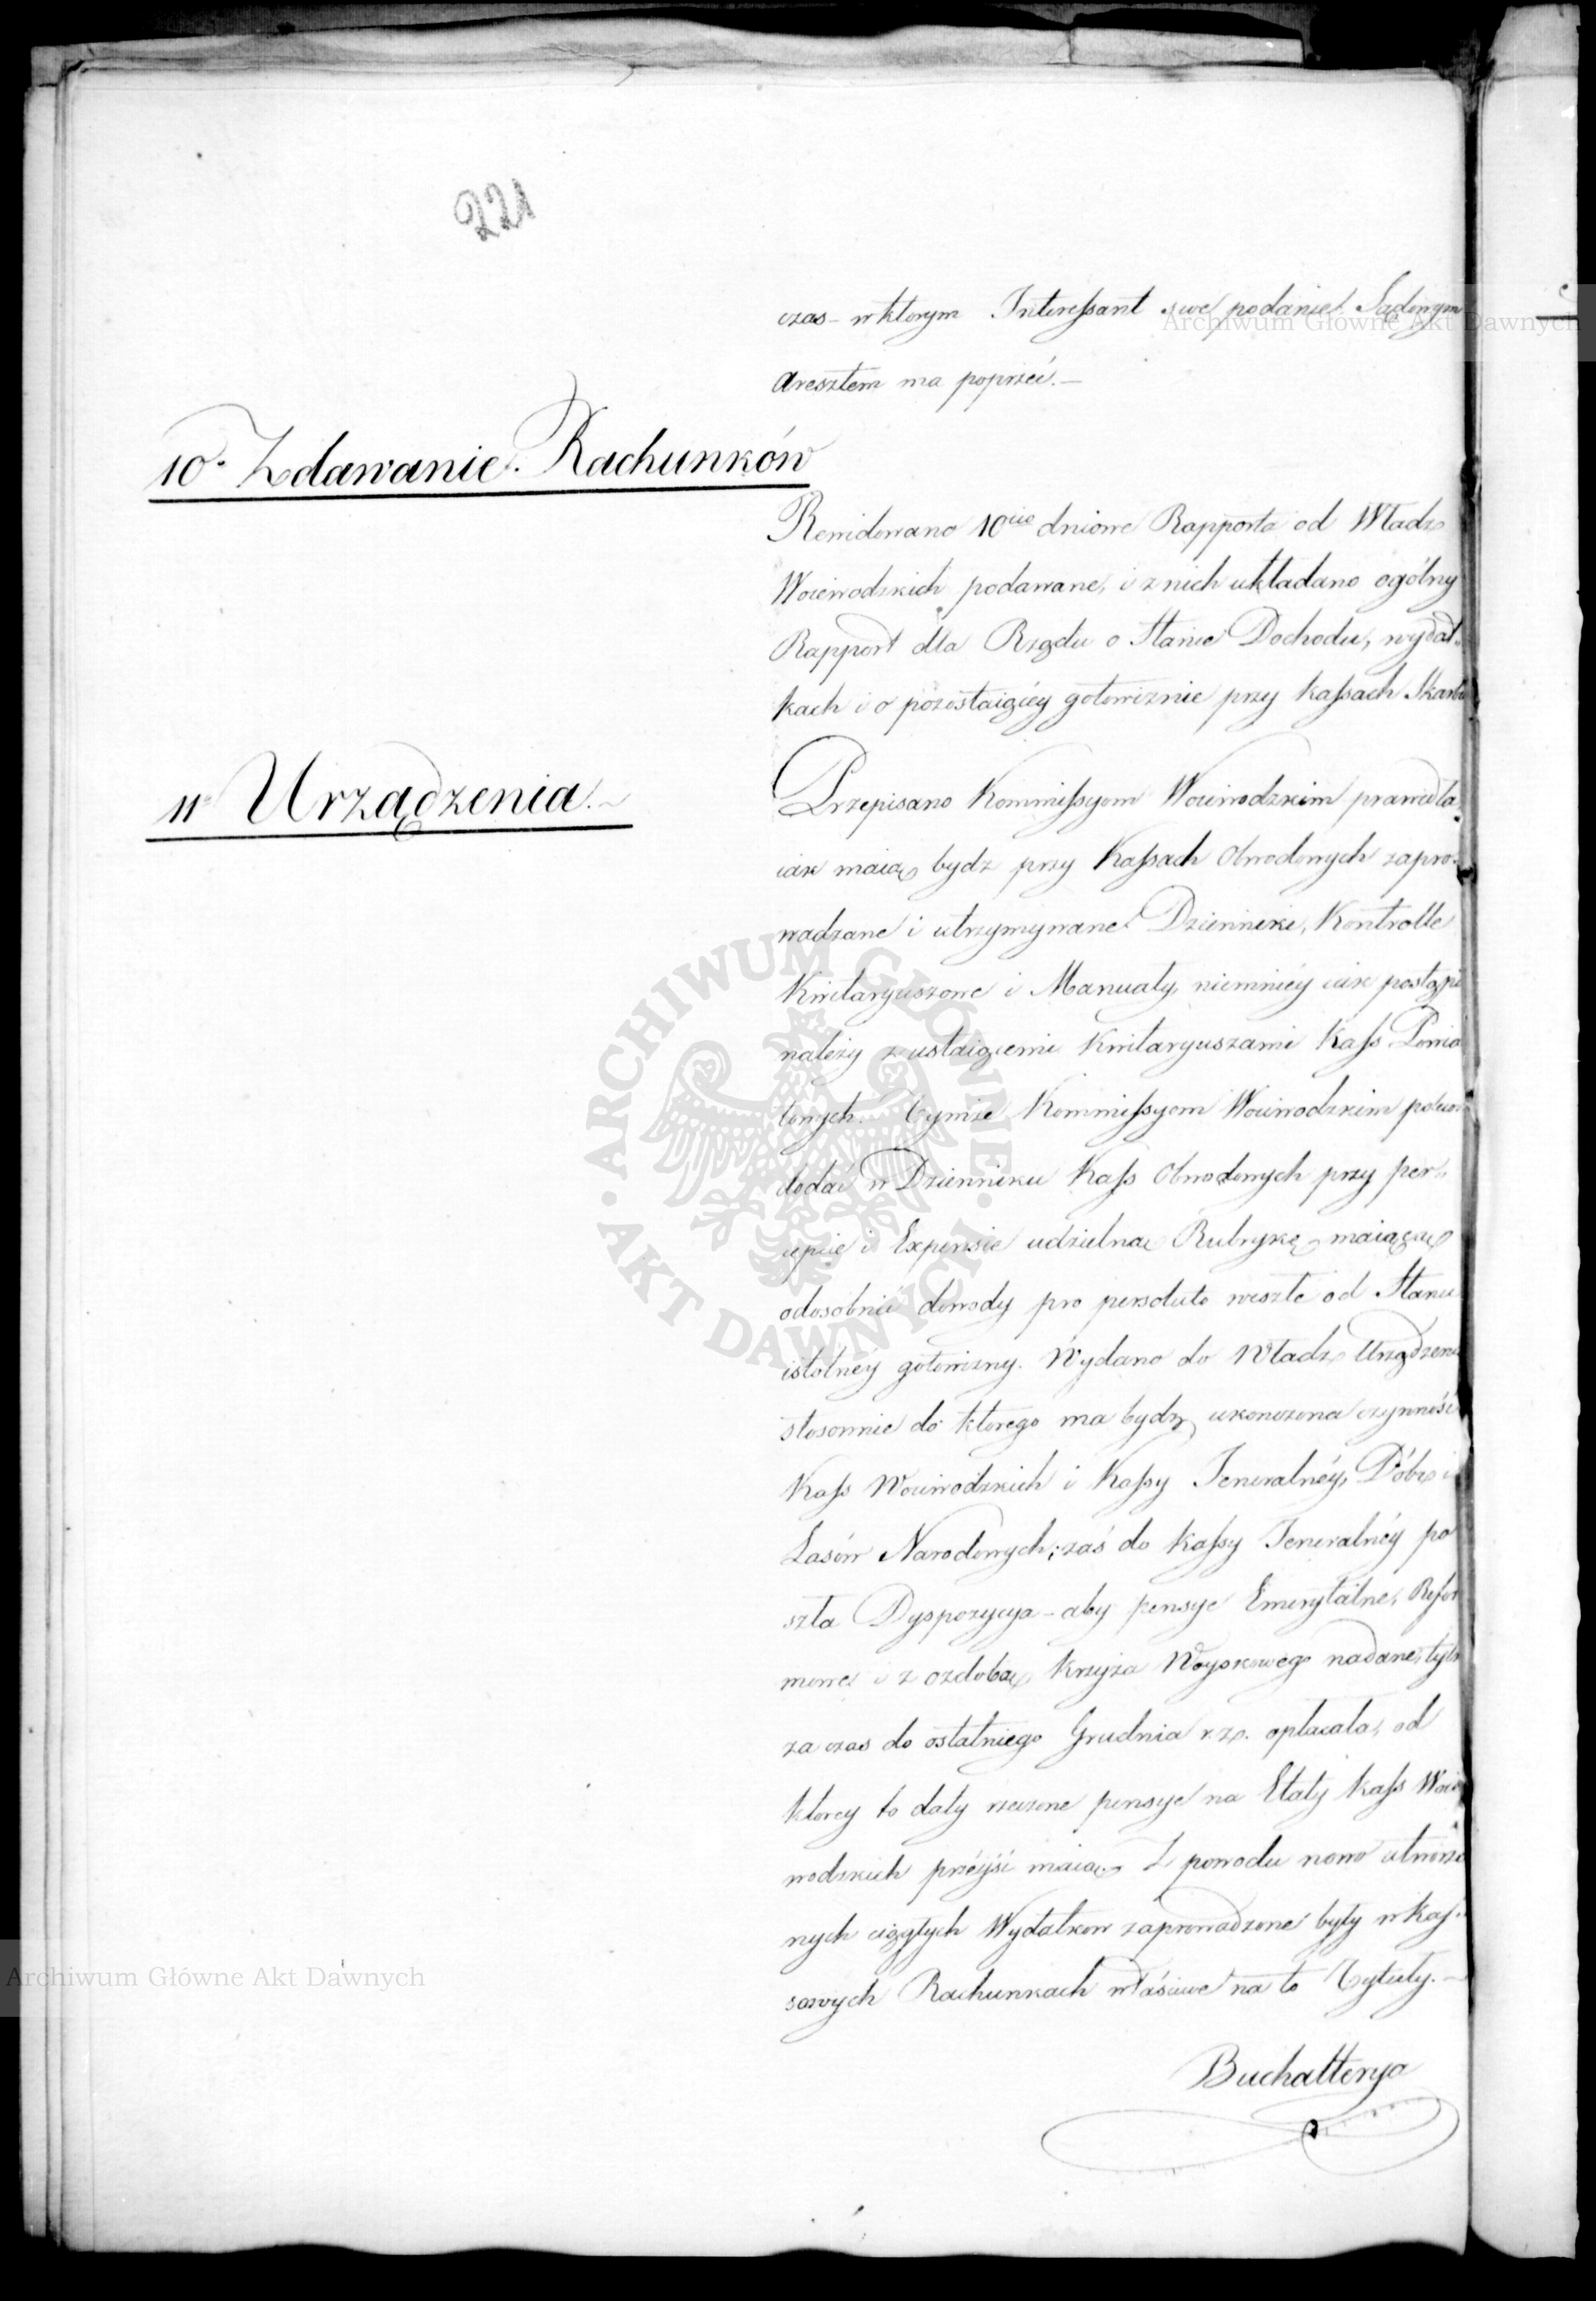 221
czas w ktorym Interessant swe podanie Sądowym
Aresztem ma poprzeć.—
10o Zdawanie Rachunków
Rewidowano 10cio dniowe Rapporta od Władz
Woiewodzkich podawane, i z nich układano ogólny
Rapport dla Rządu o Stanie Dochodu, wydat-
kach i o pozostaiącéy gotowiznie przy kassach Skarbo
11o Urządzenia.—
Przepisano Kommissyom Woiewodzkim prawidła,
iak maią bydz przy Kassach Obwodowych zapro-
wadzane i utrzymywane Dzienniki, Kontrolle
Kwitaryuszowe i Manuały, niemniéy iak postąpi
należy z ustaiącemi Kwitaryuszami Kass Powia
towych. Tymże Kommissyom Woiewodzkim polecon
dodać w Dzienniku Kass Obwodowych przy per-
cepcie i Expensie udzielną Rubrykę, maiącą
odosobnić dowody pro persoluto weszłe od Stanu
istotnéy gotowizny. Wydano do Władz Urządzeni
stosownie do ktorego ma bydz ukonczona czynność
Kass Woiewodzkich i Kassy Jeneralnéy, Dóbr i
Lasów Narodowych; zaś do kassy Jeneralnéy po
szła Dyspozycya – aby pensye Emerytalne, Refor
mowe i z ozdobą Krzyża Woyskowego nadane, tylk
za czas do ostatniego Grudnia r. z. opłacała, od
ktorey to daty rzeczone pensye na Etaty kass Woie
wodzkich przéyść maią. Z powodu nowo utworzo
nych ciągłych Wydatkow zaprowadzone były w kas-
sowych Rachunkach właściwe na to Tytuły.—
Buchalterya
Archiwum Główne Akt Dawnych
ARCHIWUM GŁÓWNE · AKT DAWNYCH ·
Archiwum Główne Akt Dawnych